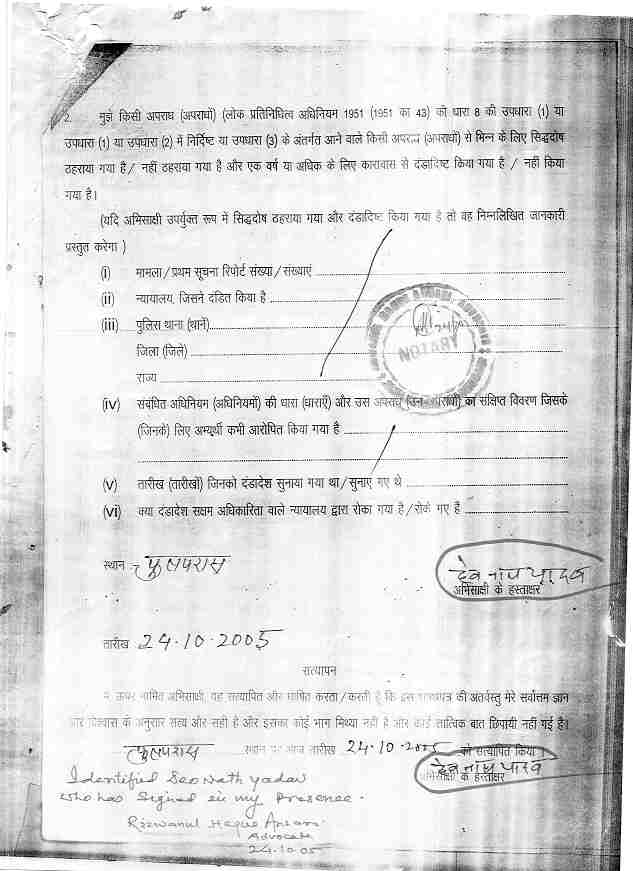 2. मुझे किसी अपराध (अपराधों) (लोक प्रतिनिधित्व अधिनियम 1951 (1951 का 43) की धारा 8 की उपधारा (1) या
उपधारा (1) या उपधारा (2) में निर्दिष्ट या उपधारा (3) के अंतर्गत आने वाले किसी अपराध (अपराधों) से भिन्न के लिए सिद्धदोष
ठहराया गया है / नहीं ठहराया गया है और एक वर्ष या अधिक के लिए कारावास से दंडादिष्ट किया गया है / नहीं किया
गया है।
(यदि अभिसाक्षी उपर्युक्त रूप में सिद्धदोष ठहराया गया और दंडादिष्ट किया गया है तो वह निम्नलिखित जानकारी
प्रस्तुत करेगा )
(i) मामला / प्रथम सूचना रिपोर्ट संख्या / संख्याएं
(ii) न्यायालय, जिसने दंडित किया है
(iii) पुलिस थाना (थानें)
जिला (जिले)
राज्य
NOTARY
(iv) संबंधित अधिनियम (अधिनियमों) की धारा (धाराएँ) और उस अपराध का संक्षिप्त विवरण जिसके
(जिनके) लिए अभ्यर्थी कभी आरोपित किया गया है
(v) तारीख (तारीखों) जिनको दंडादेश सुनाया गया था / सुनाए गए थे
(vi) क्या दंडादेश सक्षम अधिकारिता वाले न्यायालय द्वारा रोका गया है / रोके गए हैं
स्थान :- फुलपरास
देव नाथ यादव
अभिसाक्षी के हस्ताक्षर
तारीख 24.10.2005
सत्यापन
मैं ऊपर नामित अभिसाक्षी, यह सत्यापित और घोषित करता / करती है कि इस शपथपत्र की अंतर्वस्तु मेरे सर्वोत्तम ज्ञान
और विश्वास के अनुसार सत्य और सही है और इसका कोई भाग मिथ्या नहीं है और कोई तात्विक बात छिपायी नहीं गई है।
फुलपरास स्थान पर आज तारीख 24.10.2005 को सत्यापित किया।
देव नाथ यादव
अभिसाक्षी के हस्ताक्षर
Identified Deo Nath yadav
who has signed in my Presence.
Rizwanul Haque Ansari
Advocate
24.10.05